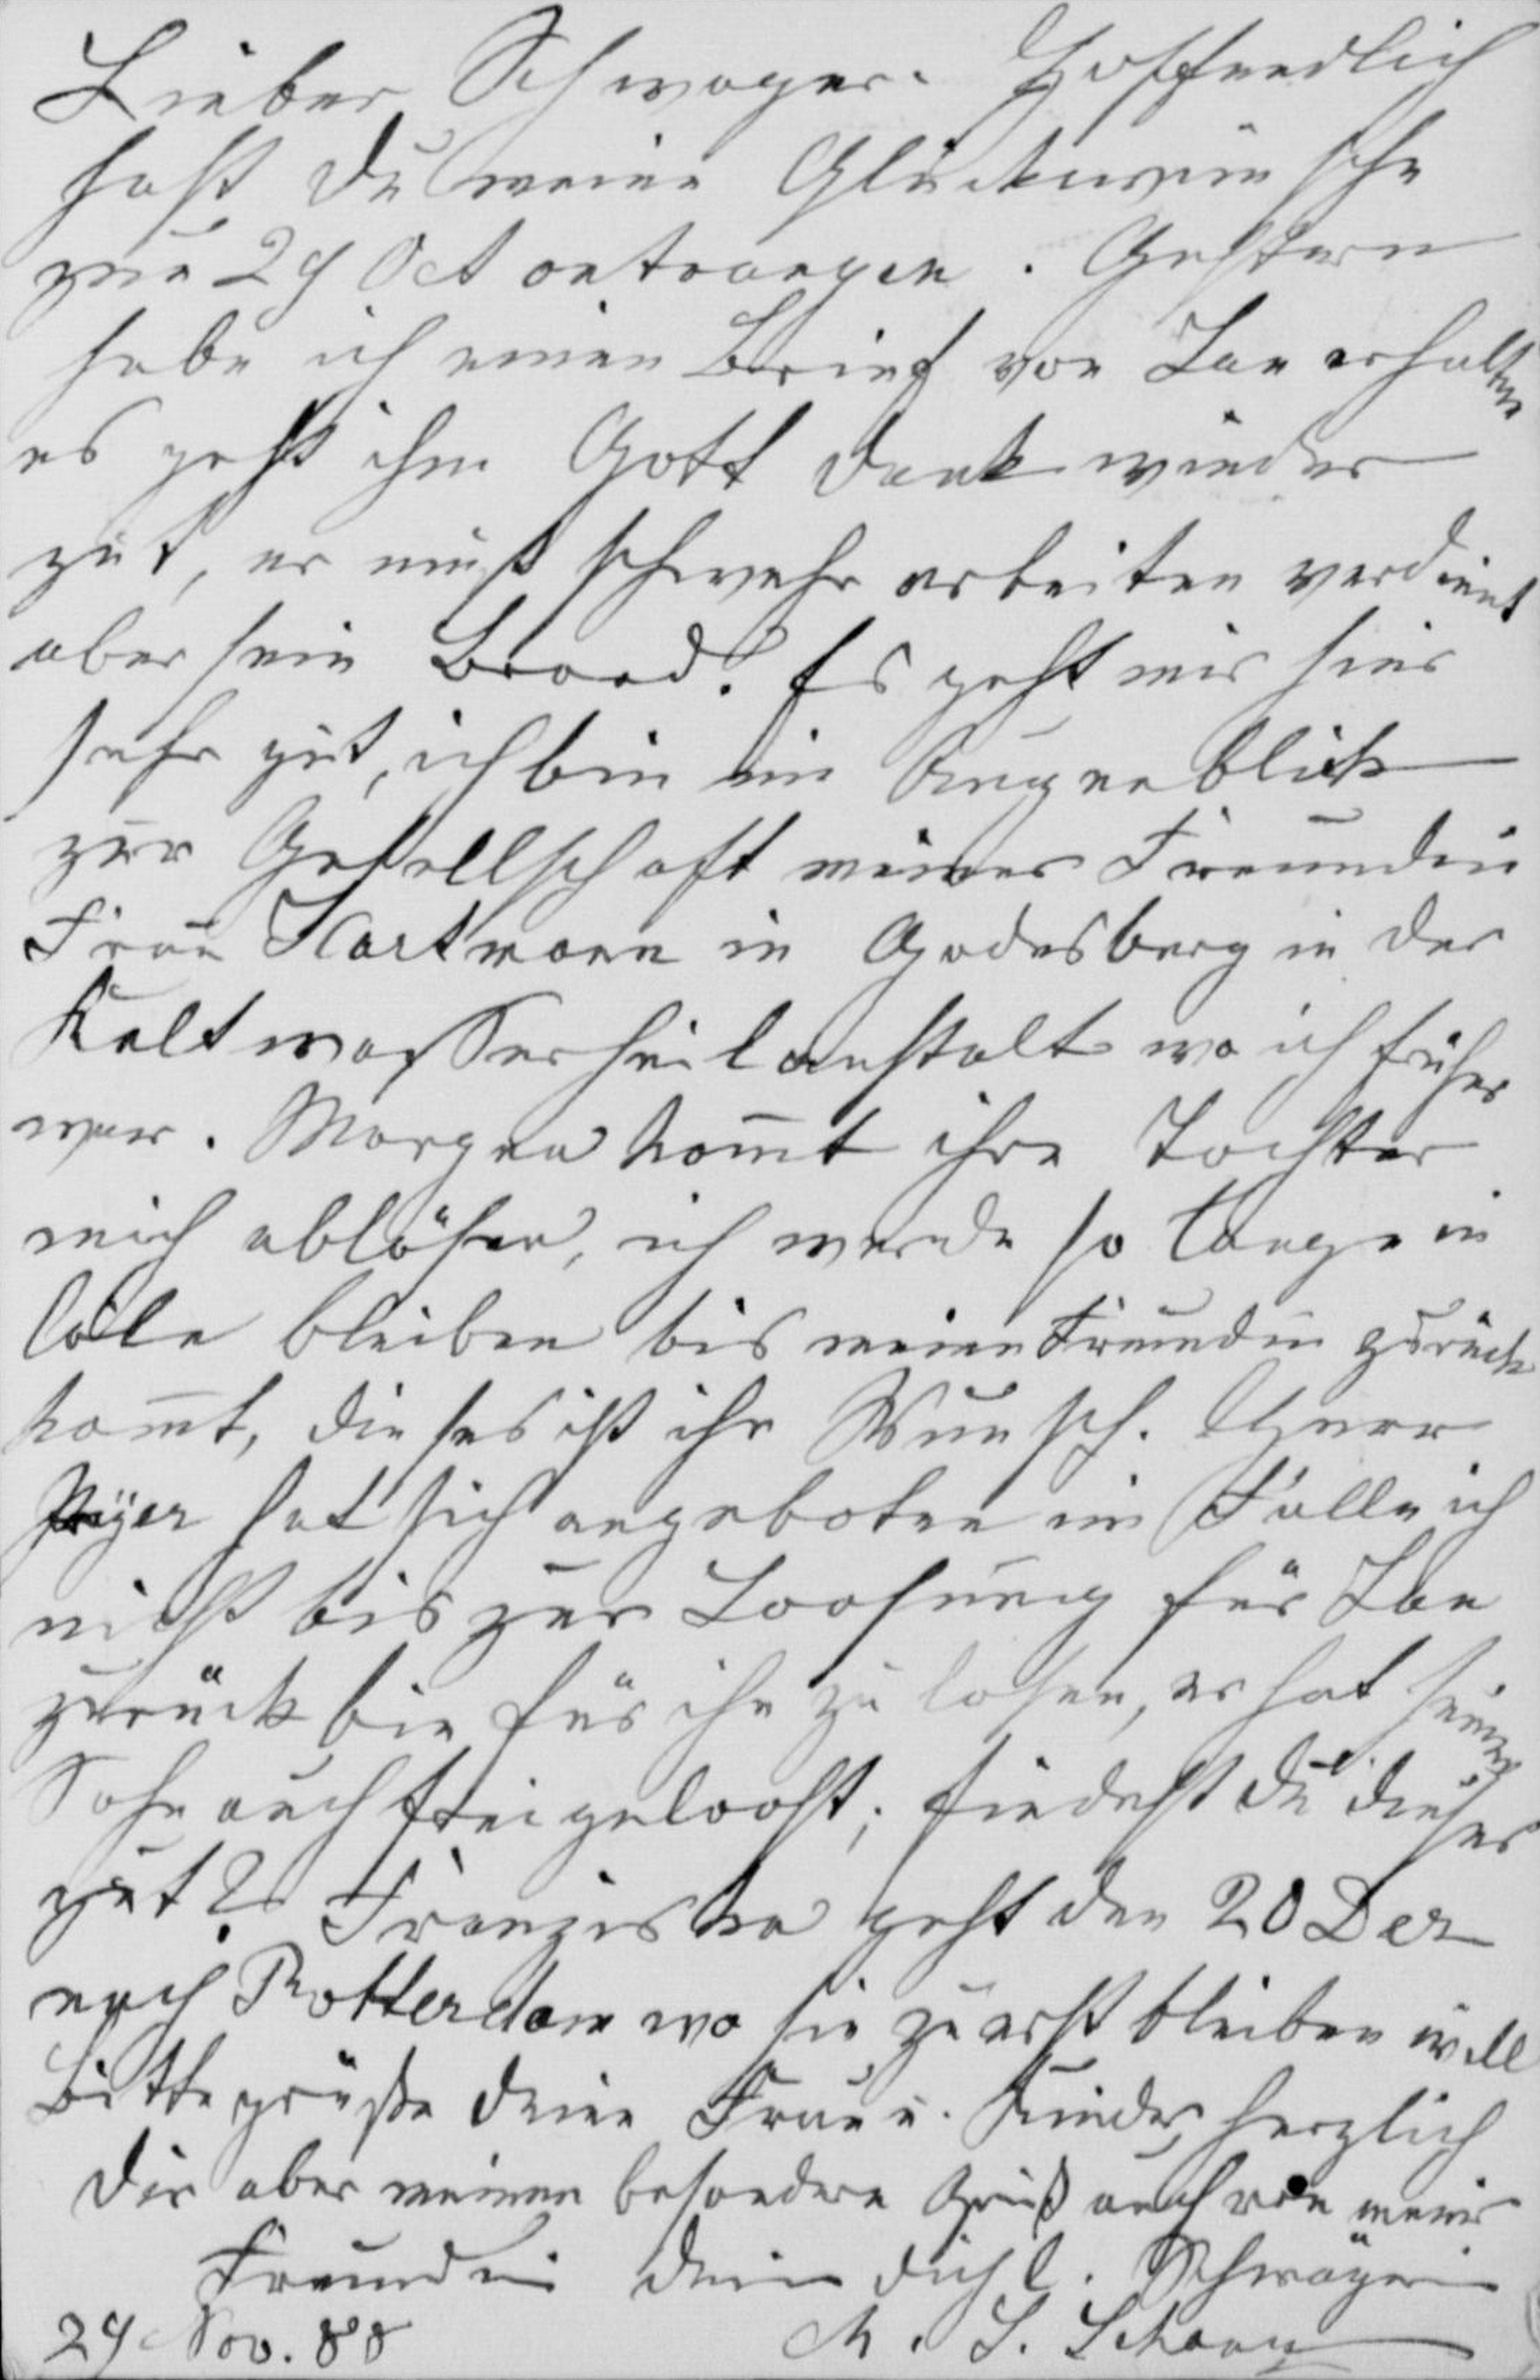 Lieber Schwager. Hoffendlich
hast Du meine Glückwünsche
zum 29 Oct entvangen. Gestern
habe ich einen Brief von Jan erhalten
es geht ihm Gott dank wieder
gut, er muß schwehr arbeiten verdient
aber sein Brood. Es geht mir hier
sehr gut, ich bin im Augenblick
zur Gesellschaft meiner Freundin
Frau Hartmann in Godesberg in der
Kaltwasserheilanstalt wo ich früher
war. Morgen kom̄t ihre Tochter
mich ablösen, ich werde so lange in
Cöln bleiben bis meine Freundin zurück
kom̄t, dieses ist ihr Wunsch. Herr
hat sich angeboten im Falle ich
nicht bis zur Loosung für Jan
zurück bin für ihn zu losen, er hat seinen
Sohn auch frei geloost; findest Du dieses
gut? Franziska geht den 20 Dez
nach Rotterdam wo sie zuerst bleiben will
Bitte grüße Deine Frau u. Kinder herzlich
Dir aber meinen besondern Gruß auch von meiner
Freundin Deine Dich l. Schwägerin
29 Nov. 88 M. J.